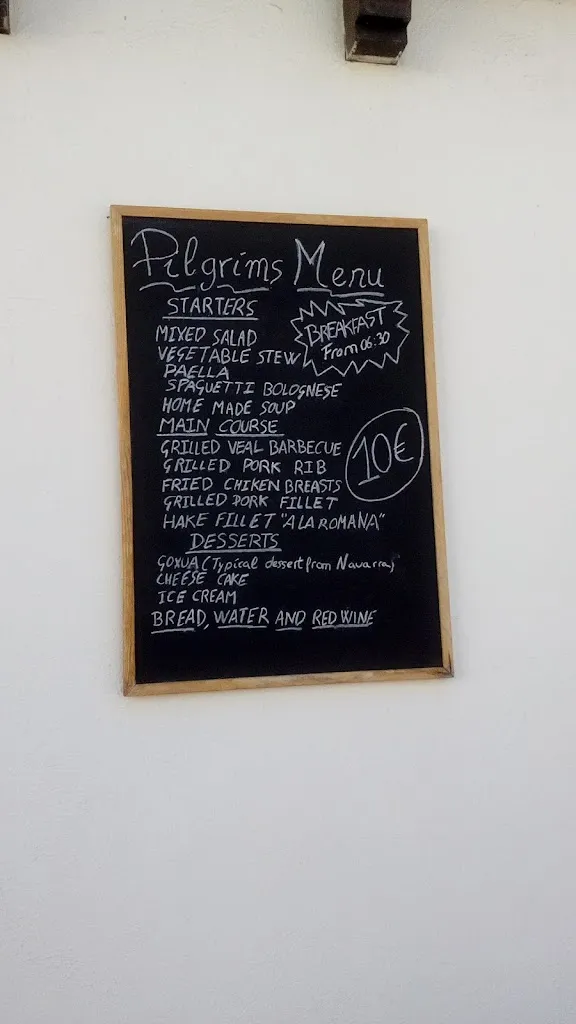 Pilgrims Menu
STARTERS
BREAKFAST
From 06:30
MIXED SALAD
VEGETABLE STEW
PAELLA
SPAGUETTI BOLOGNESE
HOME MADE SOUP
MAIN COURSE
10€
GRILLED VEAL BARBECUE
GRILLED PORK RIB
FRIED CHIKEN BREASTS
GRILLED PORK FILLET
HAKE FILLET "A LA ROMANA"
DESSERTS
GOXUA (Typical dessert from Navarra)
CHEESE CAKE
ICE CREAM
BREAD, WATER AND RED WINE